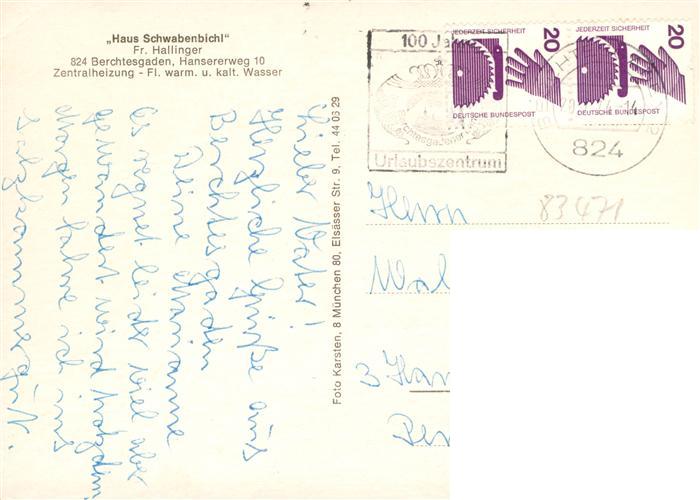 „Haus Schwabenbichl"
Fr. Hallinger
824 Berchtesgaden, Hansererweg 10
Zentralheizung - Fl. warm. u. kalt. Wasser
Lieber Vater!
Herzliche Grüße aus
Berchtesgaden
Deine Marianne
Es regnet leider viel aber
gewandert wird trotzdem
Morgen fahre ich ins
Salzkammergut.
Foto Karsten, 8 München 80, Elsässer Str. 9, Tel. 44 06 29
100 Ja
Urlaubszentrum
JEDERZEIT SICHERHEIT
20
DEUTSCHE BUNDESPOST
JEDERZEIT SICHERHEIT
20
DEUTSCHE BUNDESPOST
824
83471
Herrn
Wal
3 Han